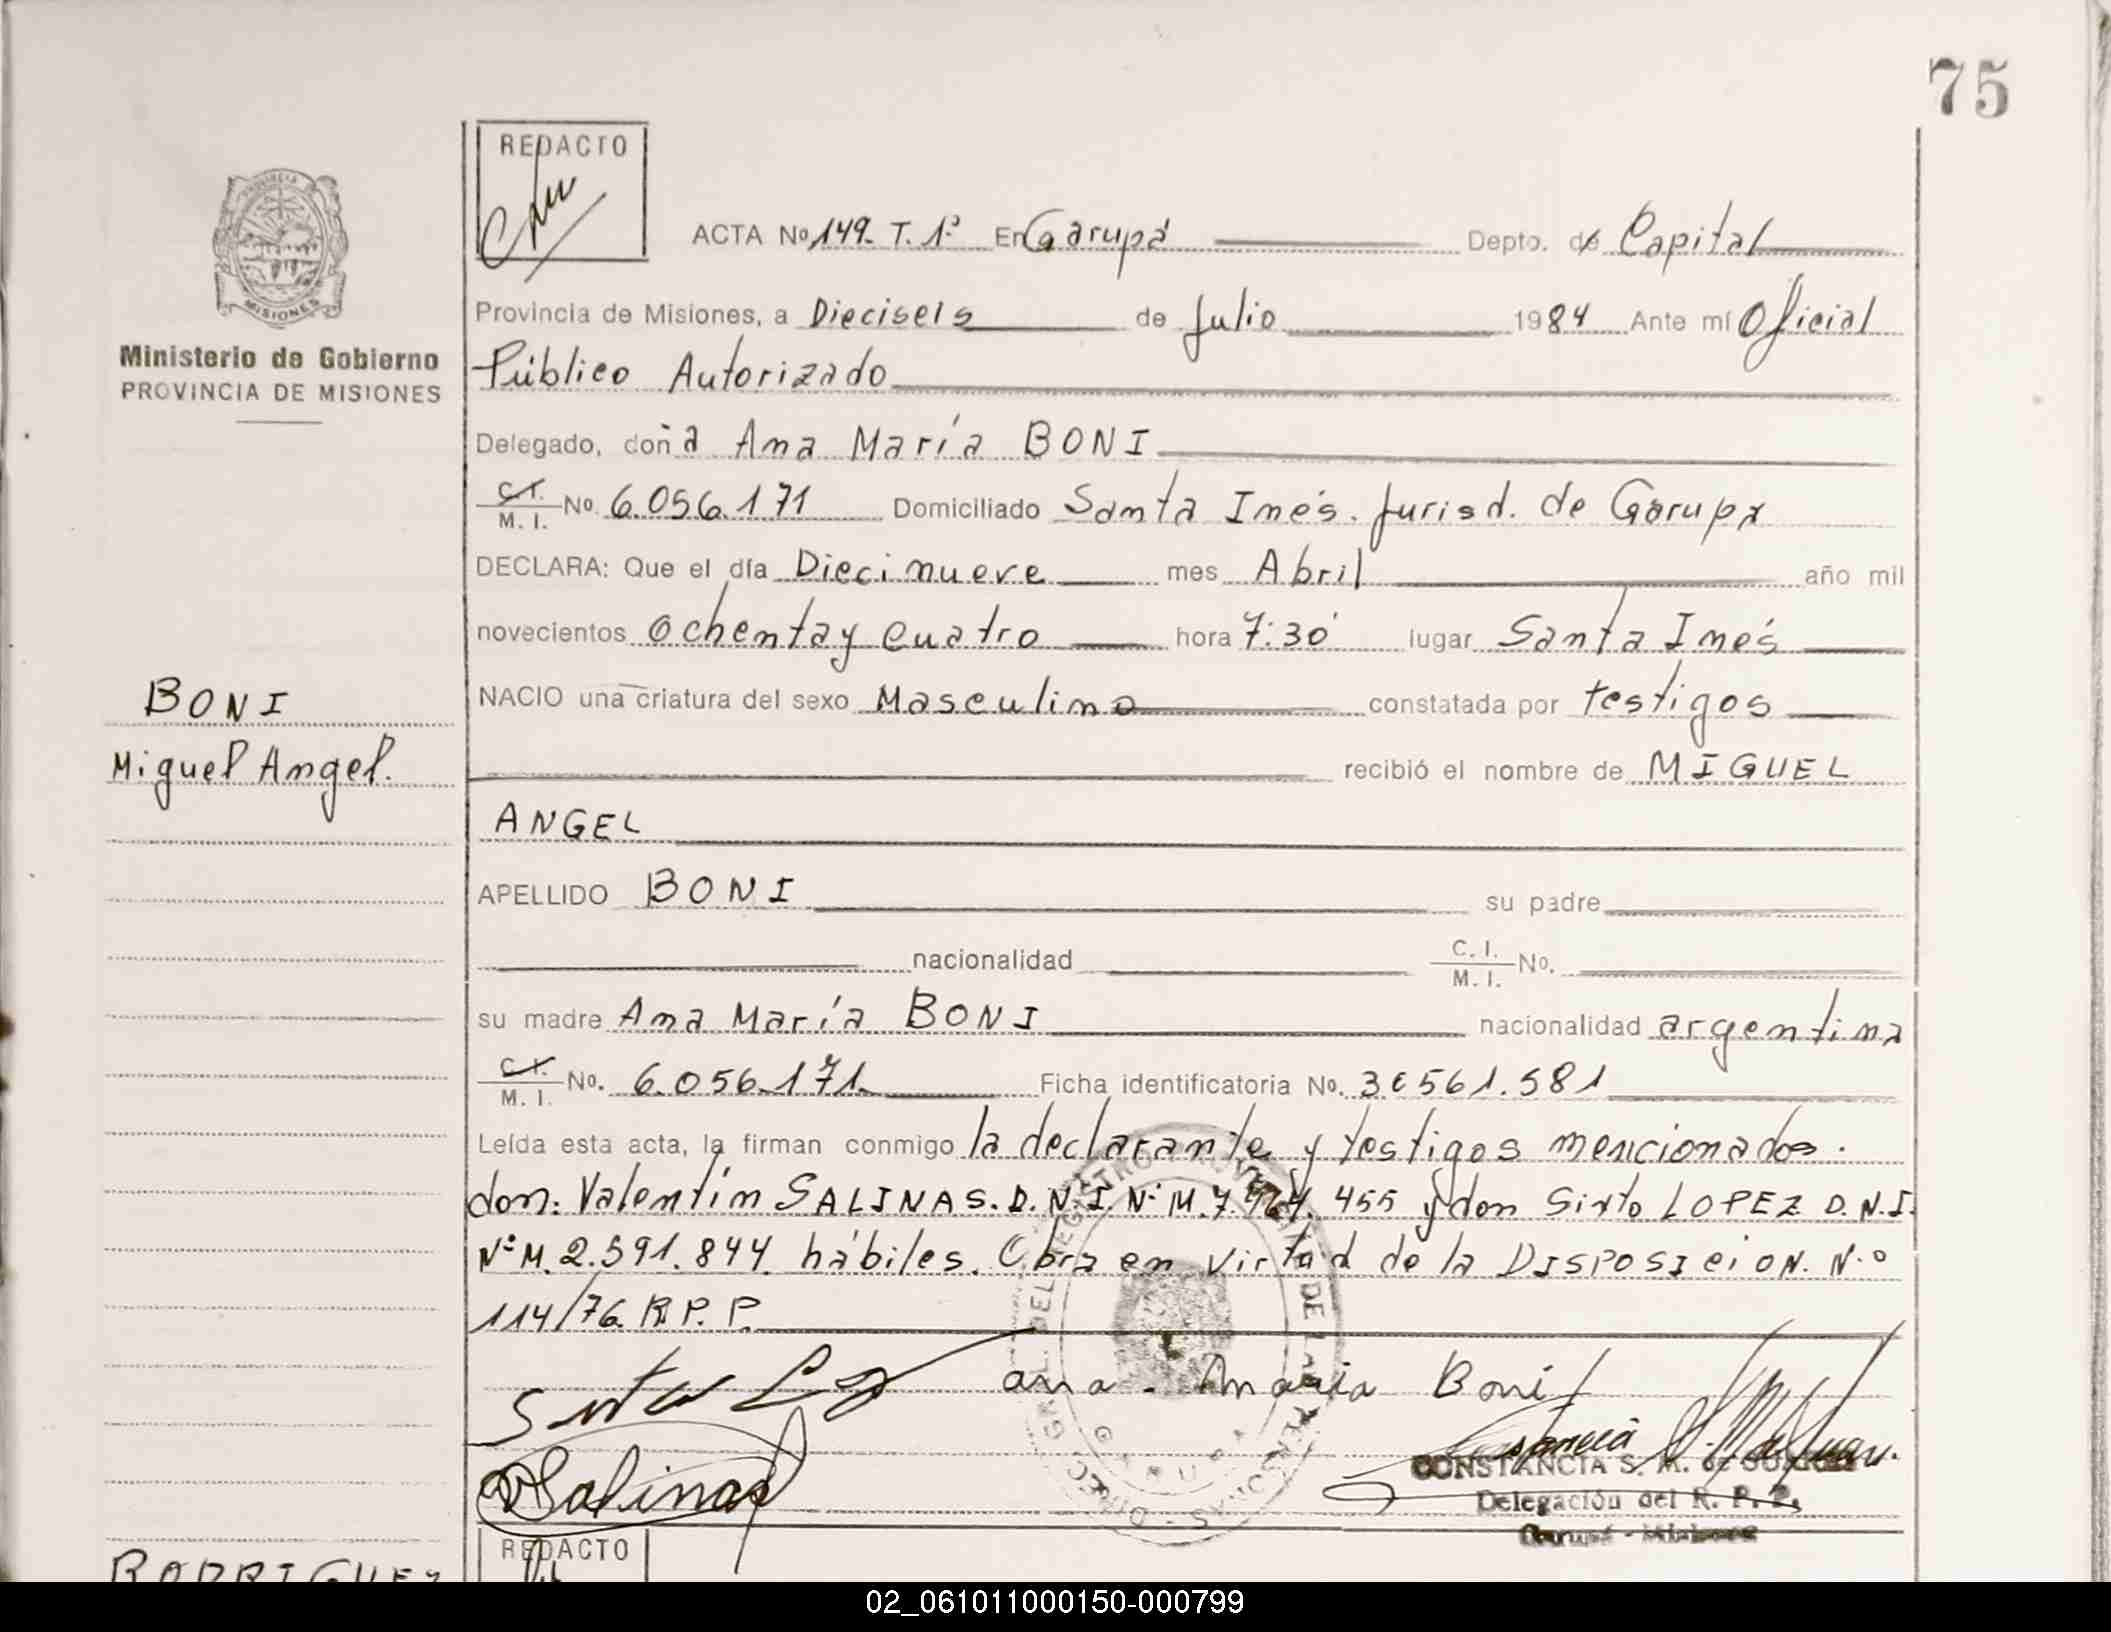 75
REDACTO
ACTA Nº 149. T. 1º En Garupá Depto. de Capital
PROVINCIA
MISIONES
Ministerio de Gobierno
PROVINCIA DE MISIONES
Provincia de Misiones, a Dieciseis de Julio 1984 Ante mí Oficial
Público Autorizado
Delegado, doña Ana María BONI
C.I. M. I. No. 6.056.171 Domiciliado Santa Inés. Jurisd. de Garupa
DECLARA: Que el día Diecinueve mes Abril año mil
novecientos Ochenta y cuatro hora 7:30 lugar Santa Inés
BONI
Miguel Angel.
NACIO una criatura del sexo Masculino constatada por testigos
recibió el nombre de MIGUEL
ANGEL
APELLIDO BONI su padre
nacionalidad C. I. M. I. No.
su madre Ana María BONI nacionalidad argentina
C.I. M. I. No. 6.056.171 Ficha identificatoria No. 30561.581
Leída esta acta, la firman conmigo la declarante y testigos mencionados.
don: Valentín SALINAS. D.N.I. Nº M. 7. 455 y don Sixto LOPEZ D.N.I.
Nº M. 2.591.844. hábiles. Obra en virtud de la DISPOSICION. N.º
114/76. R.P.P.
Ana Maria Boni
Salinas
CONSTANCIA S. M. de
Delegación del R. P. P.
Garupá - Misiones
REDACTO
RODRIGUEZ
02_061011000150-000799